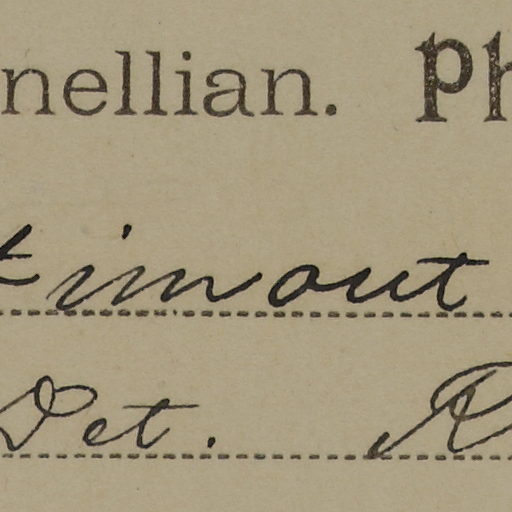 nellian. Ph
t inout
Det. R